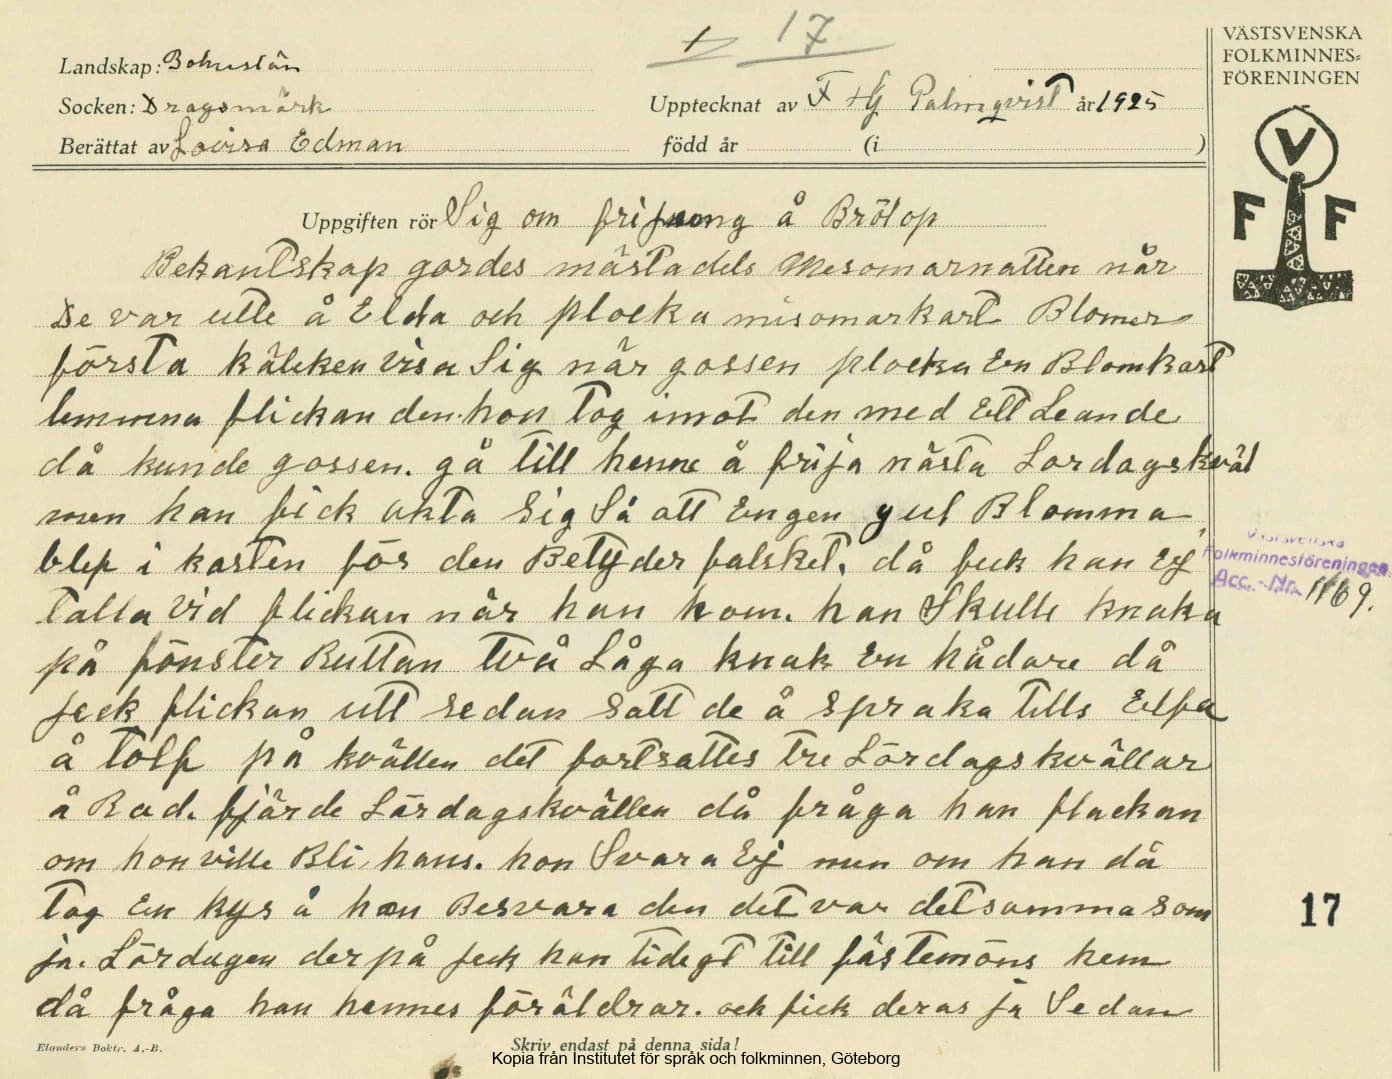 17
VÄSTSVENSKA
FOLKMINNES=
FÖRENINGEN
Landskap: Bohuslän
Socken: Dragsmärk
Upptecknat av F +G Palmqvist år 1925
Berättat av Lovisa Edman
född år (i )
V
F F
Uppgiften rör Sig om frijning å Brölop
Bekantskap gordes mästadels Mesomarnatten når
De var utte å Elda och plocka misomarkarl Blomer
första kälcken visa Sig när gossen plocka En Blomkast
lemmna flickan den. hon tog imot den med Ett Leande
då kunde gossen. gå till henne å frija nästa Lordagskväl
men han fick akta Sig Så att Engen gul Blomma
blef i kasten för den Betyder falsket. då feck han Ej
talla vid flickan når han kom. han Skulle knaka
på fönster Ruttan två Låga knak En hådare då
feck flickan utt sedan satt de å spraka tills Elfa
å tolf på kvällen det fortsattes tre Lördagskvällar
å Rad. fjärde Lördagskvällen då fråga han flackan
om hon ville Bli hans. hon Svara Ej men om han då
tog En kyss å hon Besvara den det var det samma som
ja. Lördagen derpå feck han tidigt till fästemöns hem
då fråga han hennes föräldrar. och fick deras ja Sedan
Västsvenska
Folkminnesföreningen
Acc.-Nr. 1169.
17
Elanders Boktr. A.-B.
Skriv endast på denna sida!
Kopia från Institutet för språk och folkminnen, Göteborg